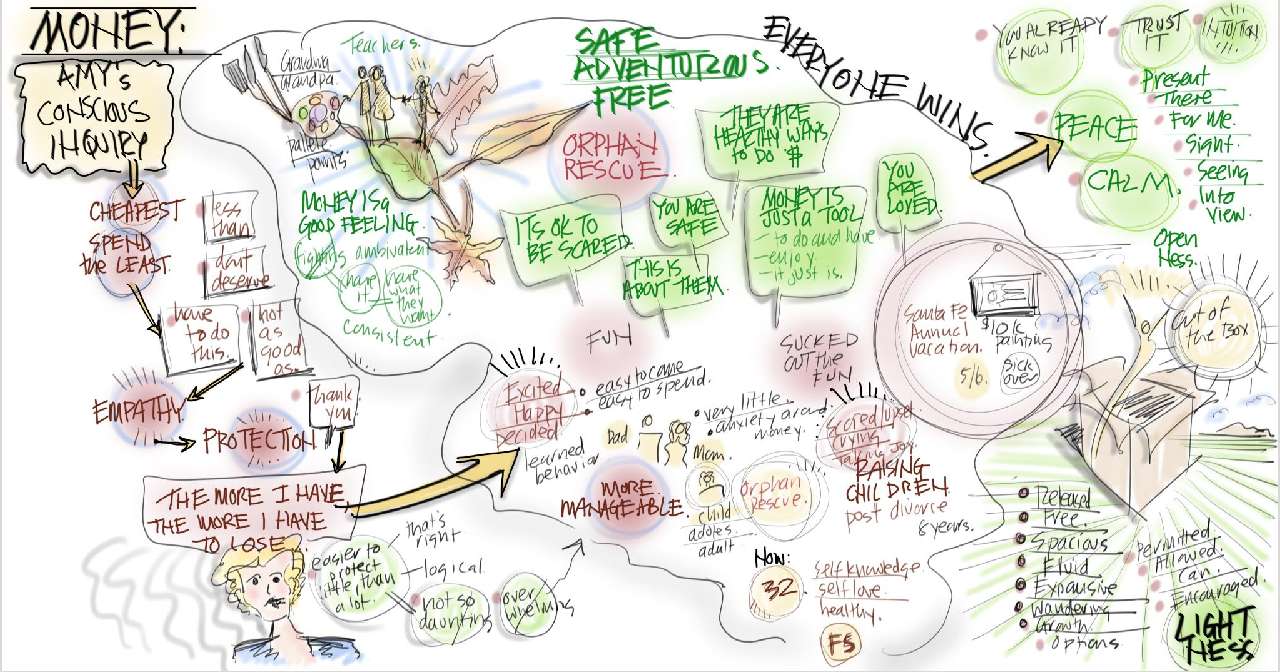 MONEY:
AMY'S
CONSCIOUS
INQUIRY
CHEAPEST
SPEND
the LEAST.
less
than
don't
deserve
have
to do
this.
not
as
good
as.
EMPATHY
PROTECTION
thank
you.
THE MORE I HAVE
THE MORE I HAVE
TO LOSE.
easier to
protect
little than
a lot.
that's
right
logical
not so
daunting
over
whelming
Grandma
Grandpa
Teachers.
pallete
paints.
MONEY IS a
GOOD FEELING.
have
it
have
what
they
want
Consistent
SAFE
ADVENTUROUS.
FREE
ORPHAN
RESCUE.
THEY ARE
HEALTHY WAYS
TO DO $
ITS OK TO
BE SCARED.
YOU ARE
SAFE
THIS IS
ABOUT THEM.
MONEY IS
JUST a TOOL
- to do and have
- enjoy
- it just is.
YOU
ARE
LOVED.
EVERYONE WINS.
FUN
SUCKED
OUT THE
FUN
Excited
Happy
Decided.
easy to come
easy to spend.
learned
behavior
Dad
Mom.
very little.
anxiety around
money.
MORE
MANAGEABLE.
child
adoles
adult
Orphan
Rescue.
RAISING
CHILDREN
post divorce
8 years.
Now:
32
self knowledge
self love.
healthy.
Santa Fe
Annual
Vacation.
5/6.
$10k
paintings
Sick
over
YOU ALREADY
KNOW IT
TRUST
IT
INTUITION
PEACE
CALM.
Present
There
For Me.
Sight.
Seeing
Into
View.
Open
Ness.
Out of
the Box
Released
Free.
Spacious
Fluid
Expansive
Wandering
Growth
Options
Permitted
Allowed.
Can.
Encouraged.
LIGHT
NESS.